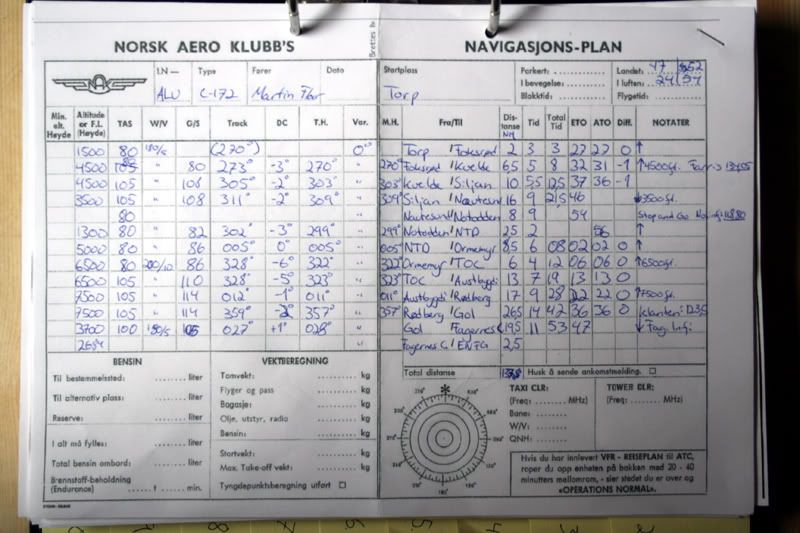 NORSK AERO KLUBB'S NAVIGASJONS-PLAN
LN — Type Fører Dato Startplass Parkert: Landet: 17 52
ALU C-172 Martin Torp I bevegelse: I luften: 24 54
Blokktid: Flygetid:
Min. alt. Høyde Altitude or F.L. (Høyde) TAS W/V G/S Track DC T.H. Var. M.H. Fra/Til Distanse NM Tid Total Tid ETO ATO Diff. NOTATER
1500 80 180/5 (270°) 0° Torp / Foksrød 2 3 3 27 27 0 ↑
4500 80 " 80 273° -3° 270° " 270° Foksrød / Kvelde 6,5 5 8 32 31 -1 ↑4500ft. Farris
4500 105 " 108 305° -2° 303° " 303° Kvelde / Siljan 10 5,5 12,5 37 36 -1
3500 105 " 108 311° -2° 309° " 309° Siljan / Nautesund 16 9 21,5 46 ↓3500ft.
80 Nautesund / Notodden 8 9 54 Stop and Go
1300 80 " 82 302° -3° 299° " 299° Notodden / NTD 2,5 2 56 ↑
5000 80 " 86 005° 0° 005° " 005° NTD / Ormemyr 8,5 6 08 02 02 0 ↑
6500 80 200/10 86 328° -6° 322° " 322° Ormemyr / TOC 6 4 12 06 06 0 ↑6500ft.
6500 105 " 110 328° -5° 323° " 323° TOC / Austbygdi 13 7 19 13 13 0
7500 105 " 114 012° -1° 011° " 011° Austbygdi / Rødberg 17 9 28 22 22 0 ↑7500ft.
7500 105 " 114 359° -2° 357° " 357° Rødberg / Gol 26,5 14 42 36 36 0
3700 100 180/5 105 027° +1° 028° " Gol Fagernes C 19,5 11 53 47 ↓ Fag. Info.
" Fagernes C / ENFG 2,5
BENSIN VEKTBEREGNING Total distanse Husk å sende ankomstmelding.
Til bestemmelsessted: liter
Til alternativ plass: liter
Reserve: liter
I alt må fylles: liter
Total bensin ombord: liter
Brennstoff-beholdning (Endurance) t min.
Tomvekt: kg
Flyger og pass kg
Bagasje: kg
Olje, utstyr, radio kg
Bensin: kg
Startvekt: kg
Max. Take-off vekt: kg
Tyngdepunktsberegning utført
TAXI CLR: TOWER CLR:
(Freq: MHz) (Freq. MHz)
Bane:
W/V:
QNH:
Hvis du har innlevert VFR - REISEPLAN til ATC,
roper du opp enheten på bakken med 20 - 40
minutters mellomrom, - sier stedet du er over og
«OPERATIONS NORMAL».